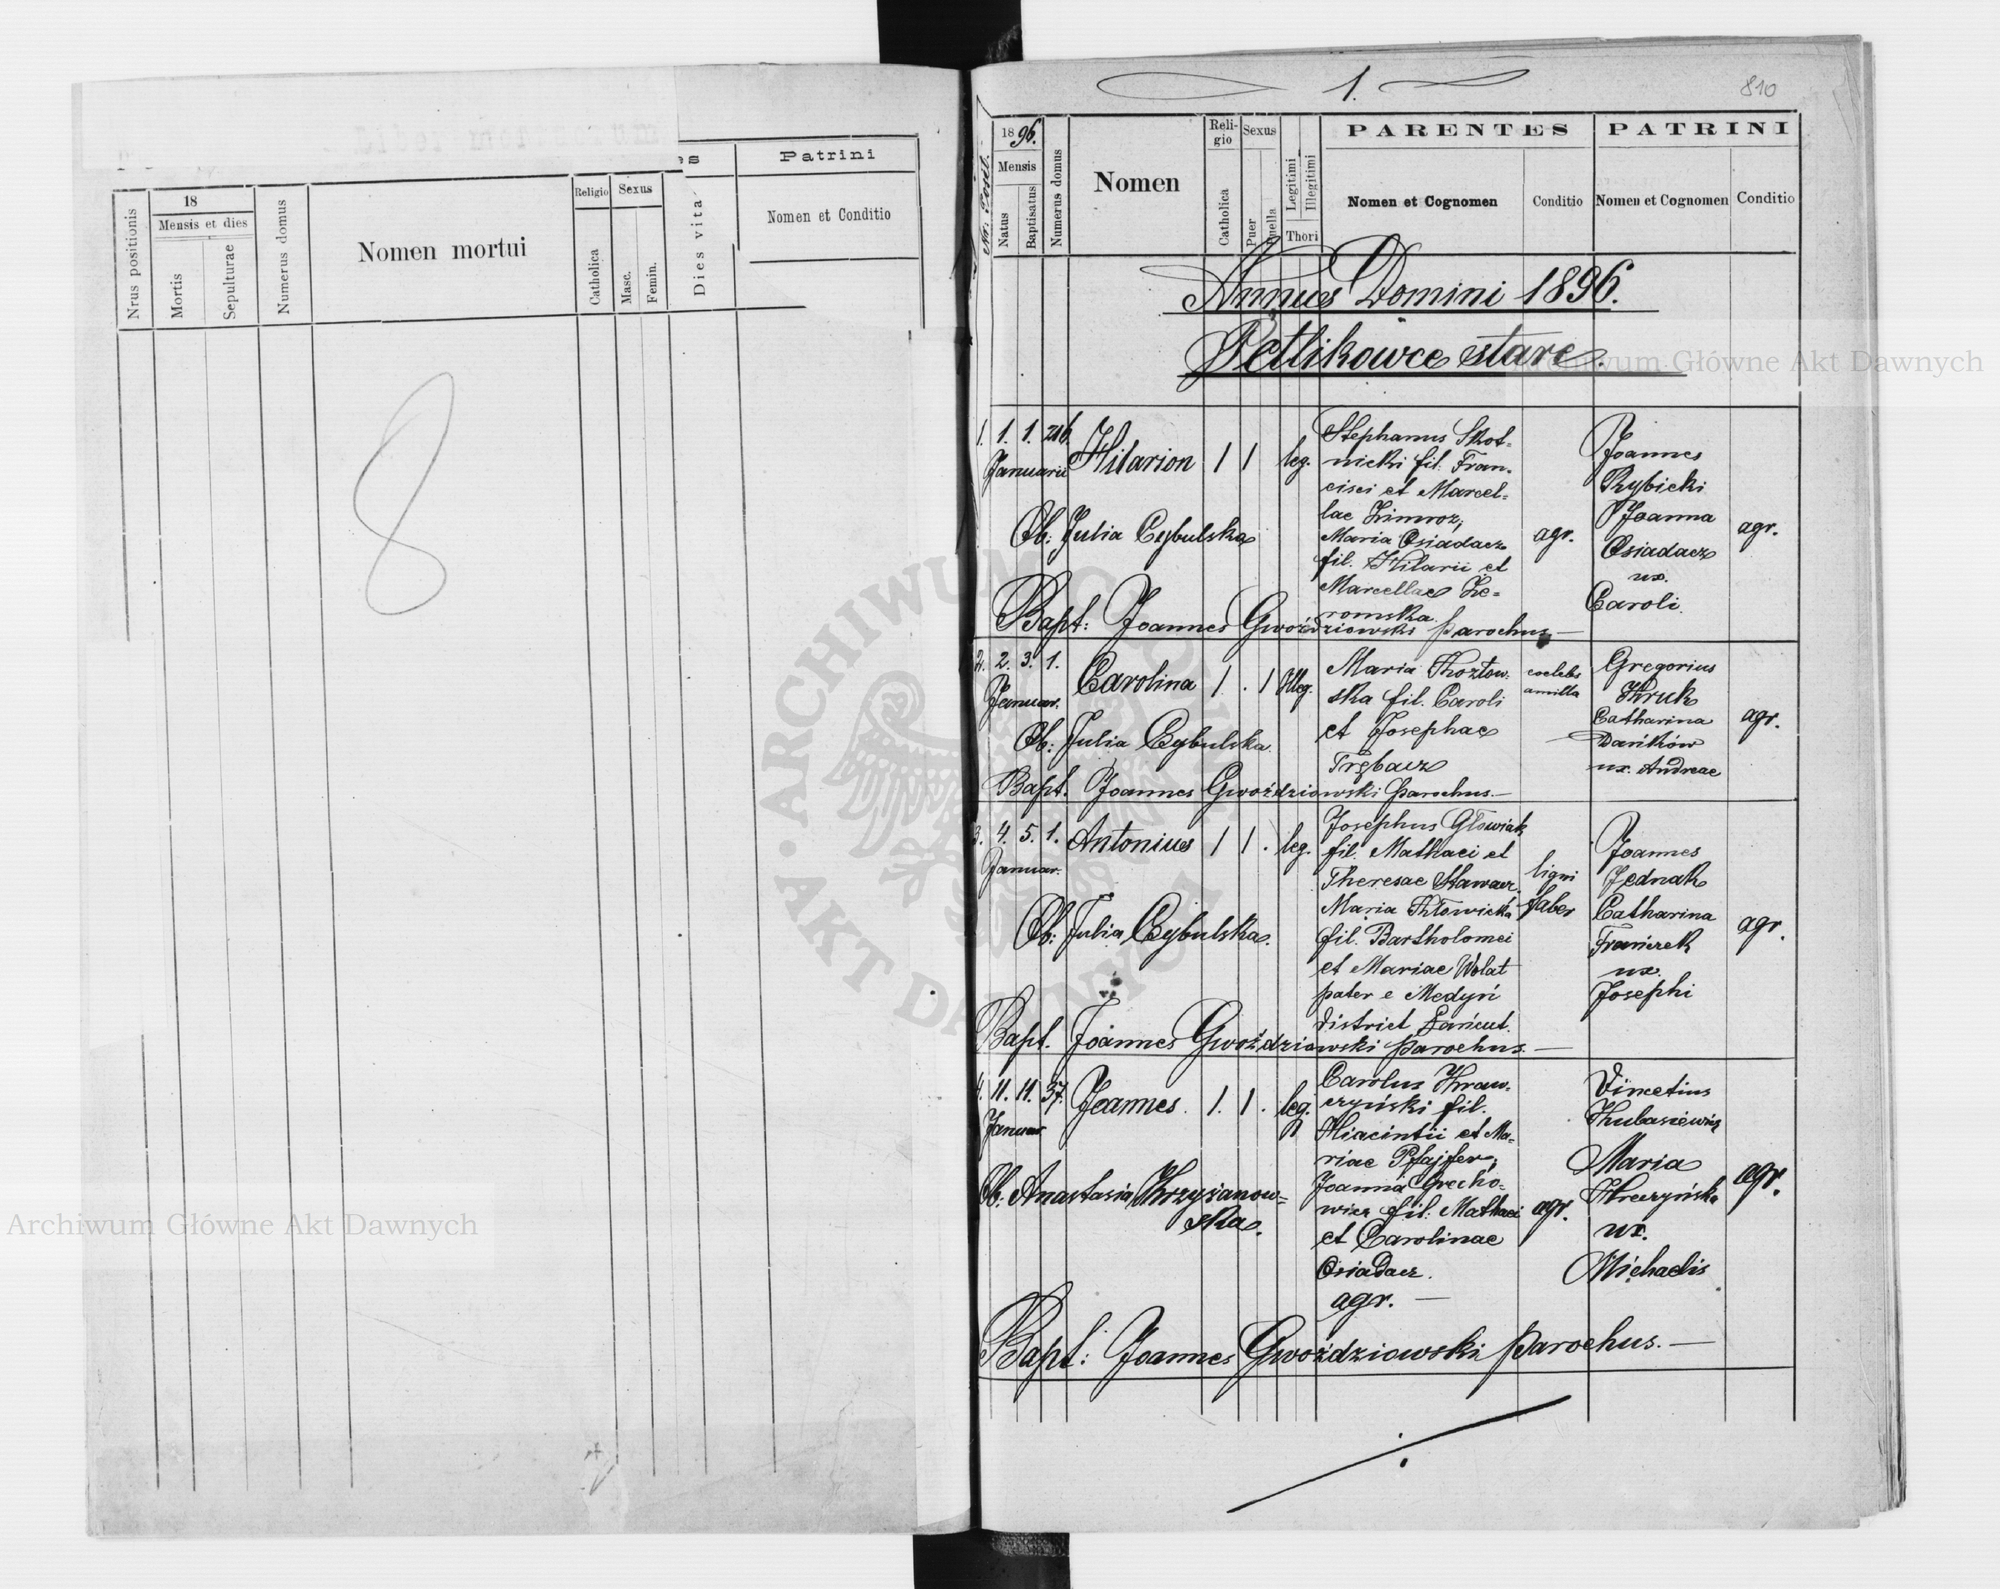 Patrini
es
Nrus positionis
18
Mensis et dies
Mortis
Sepulturae
Numerus domus
Nomen mortui
Religio
Catholica
Sexus
Masc.
Femin.
Dies vita
Nomen et Conditio
8
1.
810
Nr. Posit.
1896.
Mensis
Natus
Baptisatus
Numerus domus
Nomen
Religio
Catholica
Sexus
Puer
Puella
Legitimi
Illegitimi
Thori
PARENTES
Nomen et Cognomen
Conditio
PATRINI
Nomen et Cognomen
Conditio
Annus Domini 1896.
Petlikowce stare.
1. 1. 1. 216. Hilarion 1 1 leg.
Januarii
Ob: Julia Cybulska
Stephanus Skot=
nicki fil. Fran=
cisci et Marcel=
lae Zimroz,
Maria Osiadacz
fil. Hilarii et
Marcellae Że=
romska.
agr.
Joannes
Rybicki
Joanna
Osiadacz
ux.
Caroli.
agr.
Bapt: Joannes Gwoździowski parochus.—
2. 2. 3. 1. Carolina 1 . 1 illeg.
Januar.
Ob: Julia Cybulska.
Maria Kozłow=
ska fil. Caroli
et Josephae
Trębacz
coelebs
Gregorius
Kruk
Catharina
Dańków
ux. Andreae
agr.
Bapt. Joannes Gwoździowski parochus.—
3. 4. 5. 1. Antonius 1 1 . leg.
Januar.
Ob: Julia Cybulska.
Josephus Głowiak
fil. Mathaei et
Theresae
Maria Kłowicka
fil. Bartholomei
et Mariae Wolat
pater e Medyń
district Łańcut.
ligni
faber
Joannes
Jednak
Catharina
Frańczek
ux.
Josephi
agr.
Bapt. Joannes Gwoździowski parochus.—
4. 11. 11. 37. Joannes. 1. 1. leg.
Januar
Ob: Anastasia Krzyżanow=
ska.
Carolus Kraw=
czyński fil.
Hiacintii et Ma=
riae Pfajfer;
Joanna Grecho=
wicz fil: Mathaei
et Carolinae
Osiadacz.
agr. —
agr.
Vincetius
Kubasiewicz
Maria
ux.
Michaelis
agr.
Bapt: Joannes Gwoździowski parochus.—
Archiwum Główne Akt Dawnych
Archiwum Główne Akt Dawnych
ARCHIWUM GŁÓWNE AKT DAWNYCH